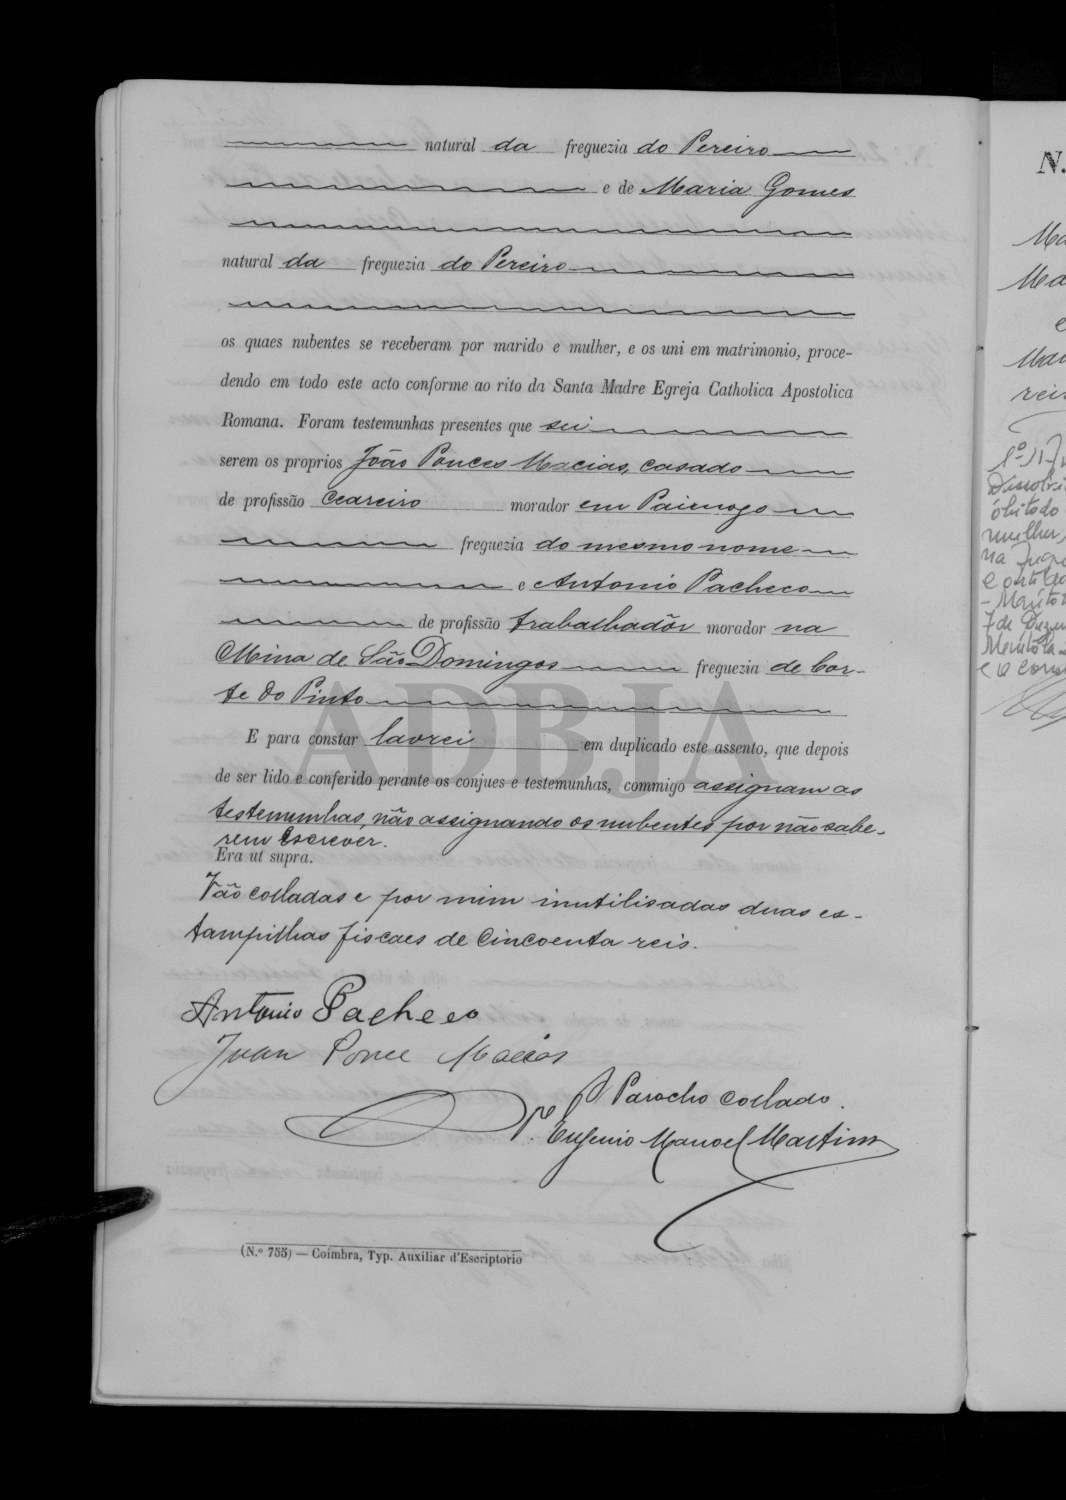 natural da freguezia do Pereiro
e de Maria Gomes
natural da freguezia do Pereiro
os quaes nubentes se receberam por marido e mulher, e os uni em matrimonio, proce-
dendo em todo este acto conforme ao rito da Santa Madre Egreja Catholica Apostolica
Romana. Foram testemunhas presentes que sei
serem os proprios João Ponces Macias, casado
de profissão Ceareiro morador em Paimogo
freguezia do mesmo nome
e Antonio Pacheco
de profissão trabalhadôr morador na
Mina de São Domingos freguezia de Cor-
te do Pinto
E para constar lavrei em duplicado este assento, que depois
de ser lido e conferido perante os conjues e testemunhas, commigo assignam as
testemunhas, não assignando os nubentes por não sabe-
rem escrever.
Era ut supra.
Vão colladas e por mim inutilisadas duas es-
tampilhas fiscaes de cincoenta reis.
Antonio Pacheco
Juan Ponce Macias
O Parocho Collado.
P. Eugenio Manoel Martins
(N.º 755) — Coimbra, Typ. Auxiliar d'Escriptorio
ADBJA
N.
Ma
e
1º
Dissolvi
óbito do
mulher,
na
7 de Dezem
Mertola